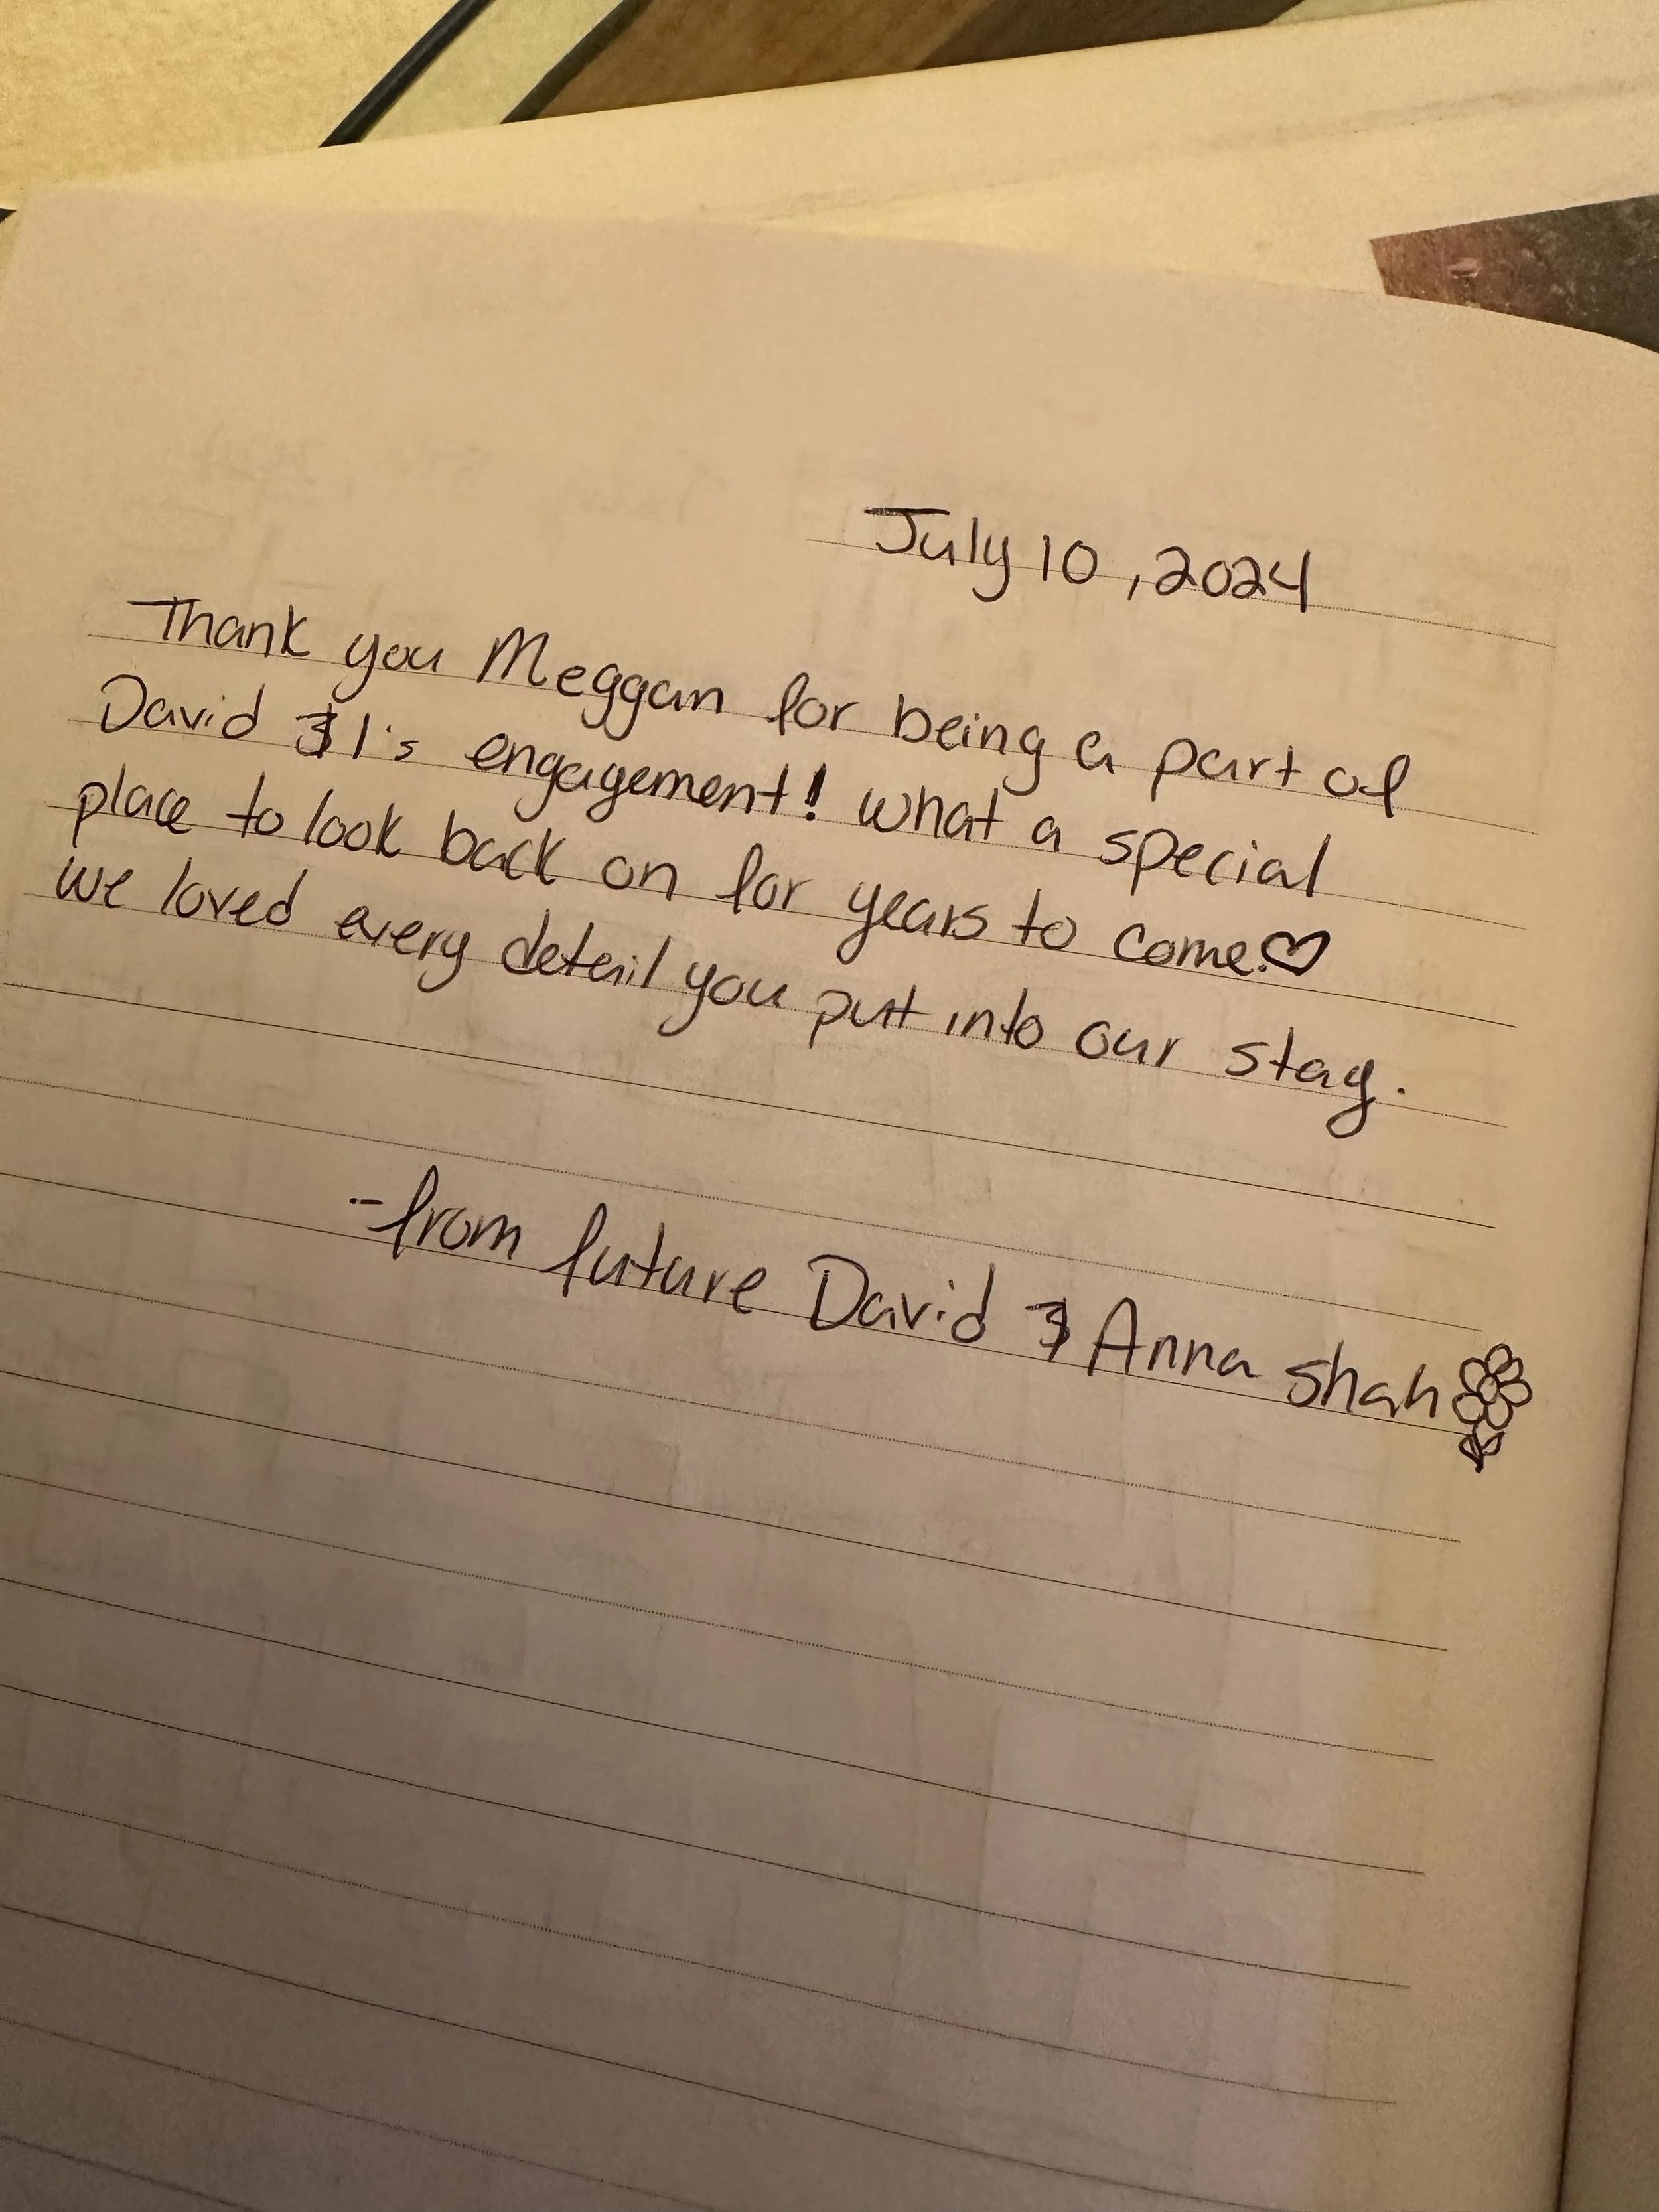 July 10, 2024
Thank you Meggan for being a part of
David & I's engagement! what a special
place to look back on for years to come.♡
we loved every detail you put into our stay.
-from future David & Anna Shah